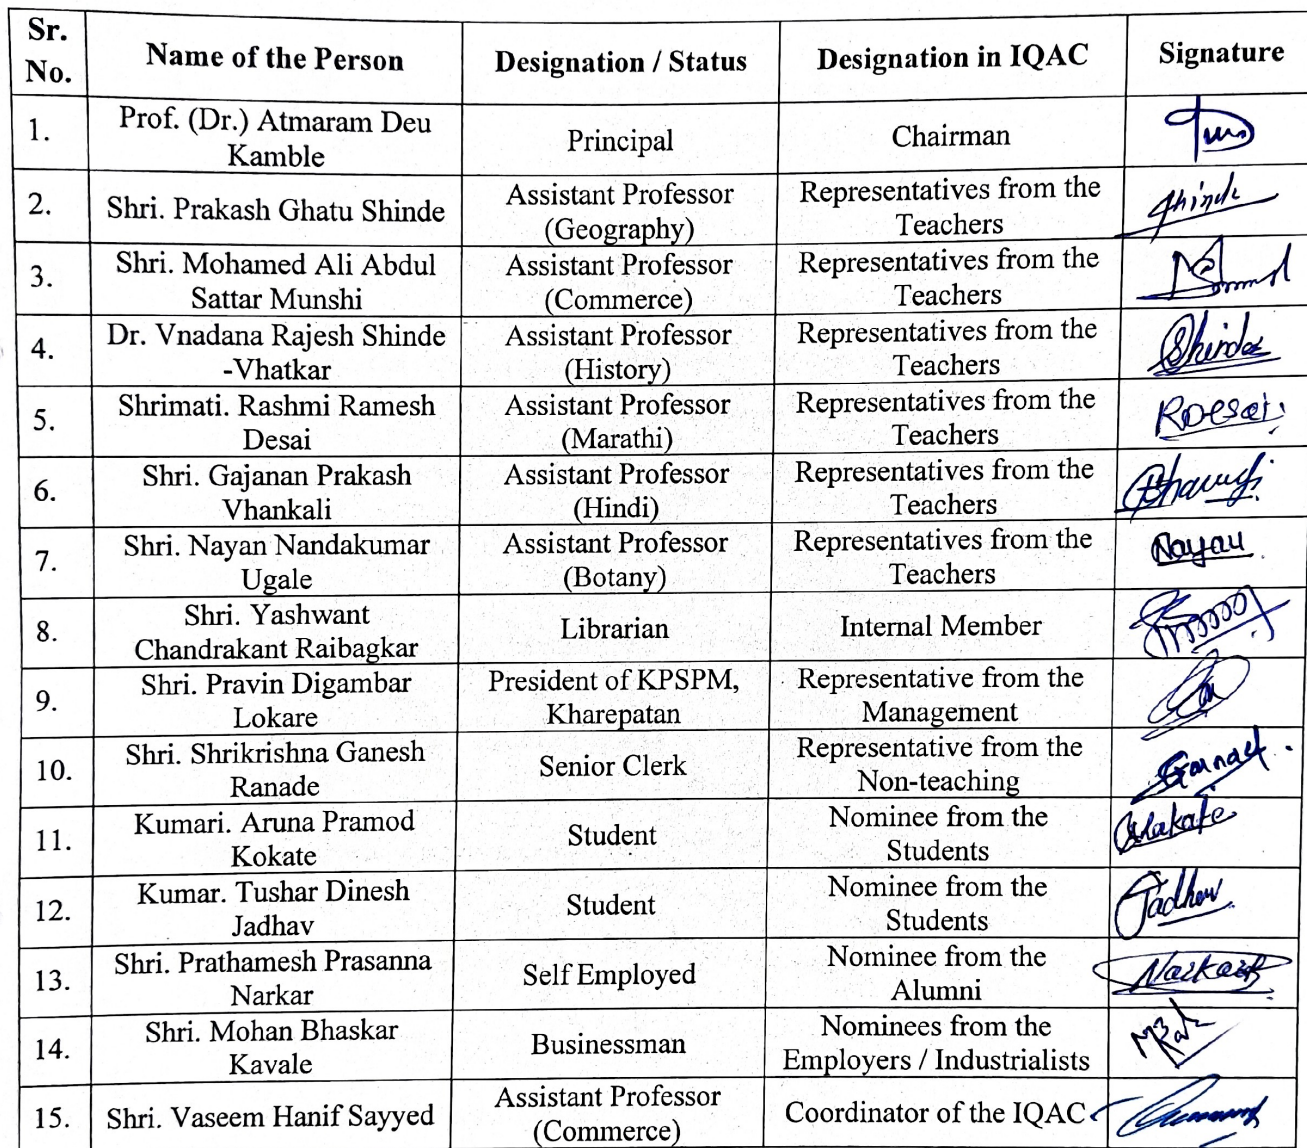 Sr. No. Name of the Person Designation / Status Designation in IQAC Signature
1. Prof. (Dr.) Atmaram Deu Kamble Principal Chairman
2. Shri. Prakash Ghatu Shinde Assistant Professor (Geography) Representatives from the Teachers Shinde
3. Shri. Mohamed Ali Abdul Sattar Munshi Assistant Professor (Commerce) Representatives from the Teachers
4. Dr. Vnadana Rajesh Shinde -Vhatkar Assistant Professor (History) Representatives from the Teachers Shinde
5. Shrimati. Rashmi Ramesh Desai Assistant Professor (Marathi) Representatives from the Teachers RDesai
6. Shri. Gajanan Prakash Vhankali Assistant Professor (Hindi) Representatives from the Teachers
7. Shri. Nayan Nandakumar Ugale Assistant Professor (Botany) Representatives from the Teachers Nayan
8. Shri. Yashwant Chandrakant Raibagkar Librarian Internal Member
9. Shri. Pravin Digambar Lokare President of KPSPM, Kharepatan Representative from the Management
10. Shri. Shrikrishna Ganesh Ranade Senior Clerk Representative from the Non-teaching
11. Kumari. Aruna Pramod Kokate Student Nominee from the Students
12. Kumar. Tushar Dinesh Jadhav Student Nominee from the Students Jadhav
13. Shri. Prathamesh Prasanna Narkar Self Employed Nominee from the Alumni
14. Shri. Mohan Bhaskar Kavale Businessman Nominees from the Employers / Industrialists
15. Shri. Vaseem Hanif Sayyed Assistant Professor (Commerce) Coordinator of the IQAC